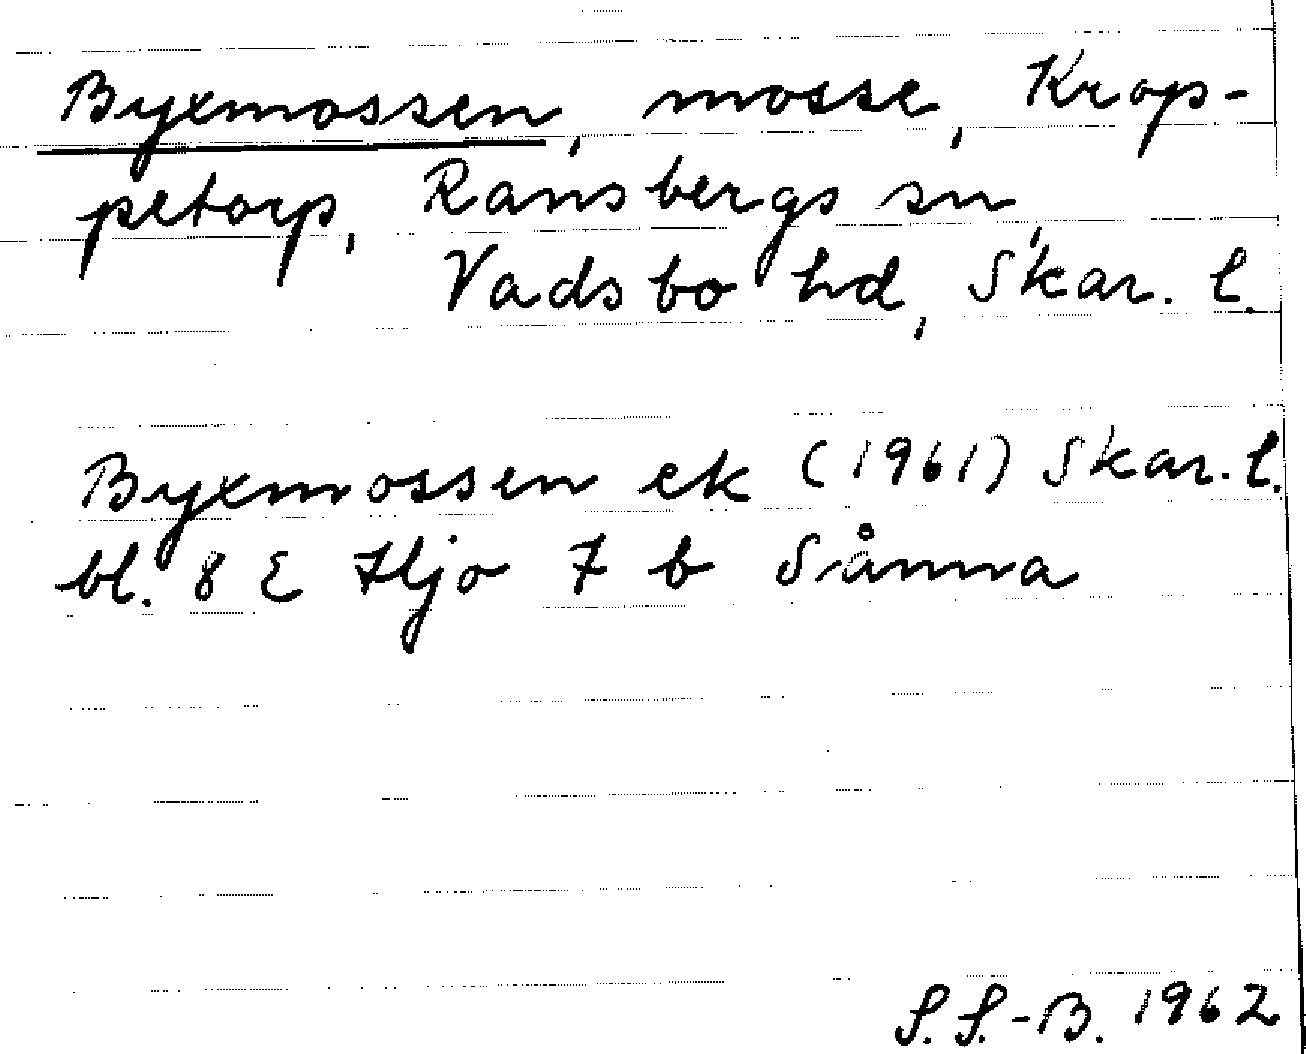 Byxmossen, mosse, Krop-
petorp, Ransbergs sn,
Vadsbo hd, Skar. l.
Byxmossen ek (1961) Skar. l.
bl. 8 E Hjo 7 b Sånna
S. S.-B. 1962